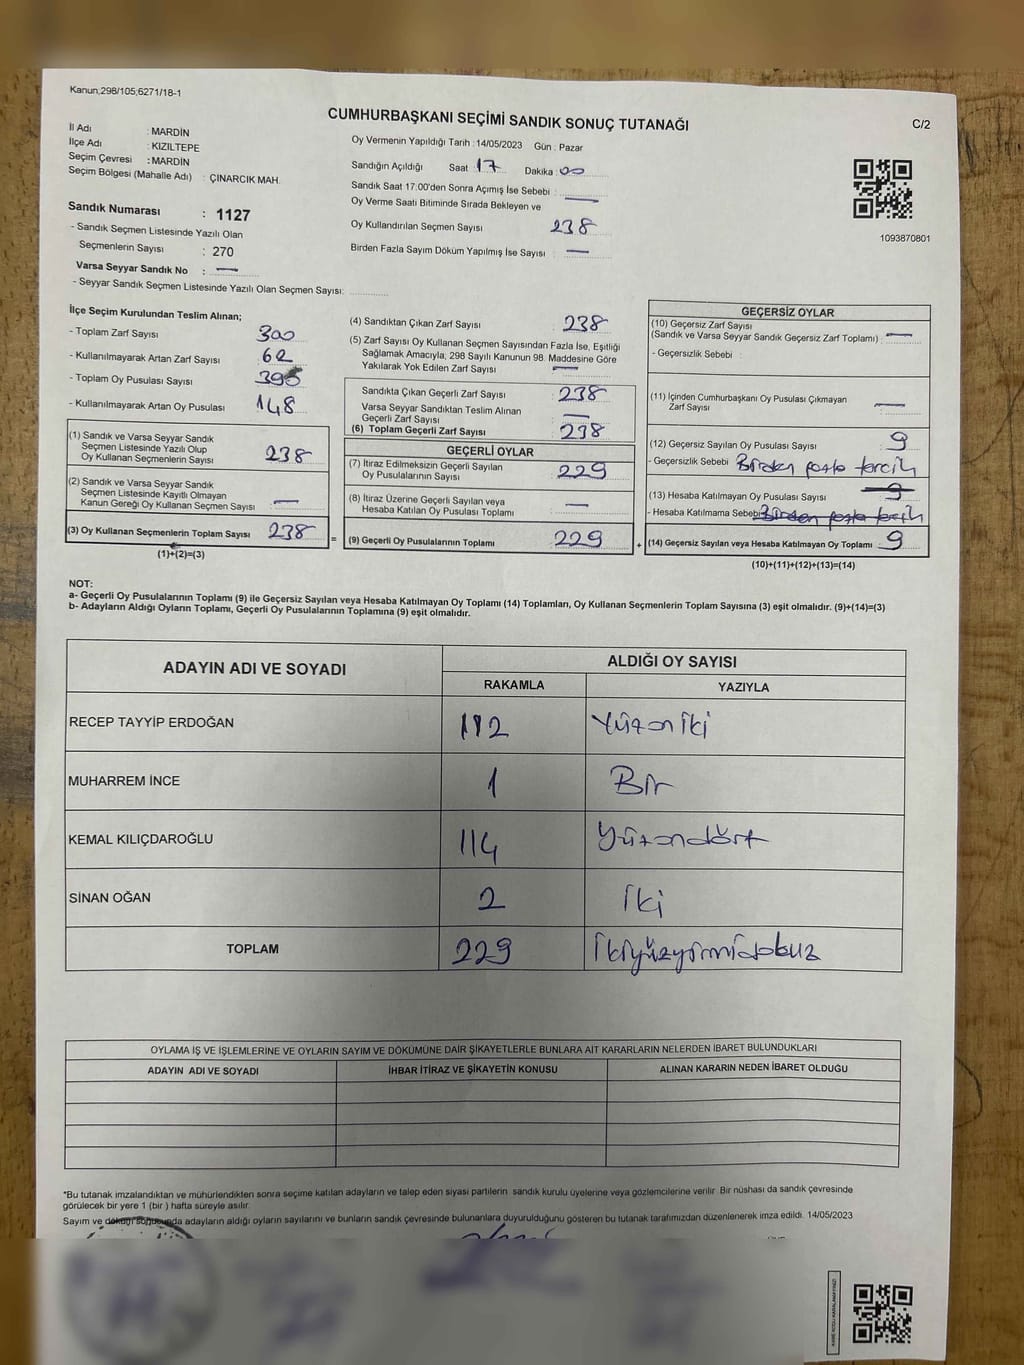 Kanun;298/105;6271/18-1
CUMHURBAŞKANI SEÇİMİ SANDIK SONUÇ TUTANAĞI
C/2
İl Adı : MARDİN
İlçe Adı : KIZILTEPE
Seçim Çevresi : MARDİN
Seçim Bölgesi (Mahalle Adı) : ÇINARCIK MAH.
Oy Vermenin Yapıldığı Tarih : 14/05/2023 Gün : Pazar
Sandığın Açıldığı Saat : 17 Dakika : 00
Sandık Saat 17:00'den Sonra Açımış İse Sebebi : —
Oy Verme Saati Bitiminde Sırada Bekleyen ve
Oy Kullandırılan Seçmen Sayısı : 238
Birden Fazla Sayım Döküm Yapılmış İse Sayısı : —
1093870801
Sandık Numarası : 1127
- Sandık Seçmen Listesinde Yazılı Olan
Seçmenlerin Sayısı : 270
Varsa Seyyar Sandık No : —
- Seyyar Sandık Seçmen Listesinde Yazılı Olan Seçmen Sayısı:
İlçe Seçim Kurulundan Teslim Alınan;
- Toplam Zarf Sayısı 300
- Kullanılmayarak Artan Zarf Sayısı : 62
- Toplam Oy Pusulası Sayısı
- Kullanılmayarak Artan Oy Pusulası : 148
(1) Sandık ve Varsa Seyyar Sandık
Seçmen Listesinde Yazılı Olup
Oy Kullanan Seçmenlerin Sayısı : 238
(2) Sandık ve Varsa Seyyar Sandık
Seçmen Listesinde Kayıtlı Olmayan
Kanun Gereği Oy Kullanan Seçmen Sayısı : —
(3) Oy Kullanan Seçmenlerin Toplam Sayısı : 238 =
(1)+(2)=(3)
(4) Sandıktan Çıkan Zarf Sayısı : 238
(5) Zarf Sayısı Oy Kullanan Seçmen Sayısından Fazla İse, Eşitliği
Sağlamak Amacıyla; 298 Sayılı Kanunun 98. Maddesine Göre
Yakılarak Yok Edilen Zarf Sayısı : —
Sandıkta Çıkan Geçerli Zarf Sayısı : 238
Varsa Seyyar Sandıktan Teslim Alınan
Geçerli Zarf Sayısı : —
(6) Toplam Geçerli Zarf Sayısı : 238
GEÇERLİ OYLAR
(7) İtiraz Edilmeksizin Geçerli Sayılan
Oy Pusulalarının Sayısı : 229
(8) İtiraz Üzerine Geçerli Sayılan veya
Hesaba Katılan Oy Pusulası Toplamı : —
(9) Geçerli Oy Pusulalarının Toplamı : 229 +
GEÇERSİZ OYLAR
(10) Geçersiz Zarf Sayısı
(Sandık ve Varsa Seyyar Sandık Geçersiz Zarf Toplamı) : —
- Geçersizlik Sebebi :
(11) İçinden Cumhurbaşkanı Oy Pusulası Çıkmayan
Zarf Sayısı : —
(12) Geçersiz Sayılan Oy Pusulası Sayısı : 9
- Geçersizlik Sebebi : Birden fazla tercih
(13) Hesaba Katılmayan Oy Pusulası Sayısı : 9
- Hesaba Katılmama Sebebi : Birden fazla tercih
(14) Geçersiz Sayılan veya Hesaba Katılmayan Oy Toplamı : 9
(10)+(11)+(12)+(13)=(14)
NOT:
a- Geçerli Oy Pusulalarının Toplamı (9) ile Geçersiz Sayılan veya Hesaba Katılmayan Oy Toplamı (14) Toplamları, Oy Kullanan Seçmenlerin Toplam Sayısına (3) eşit olmalıdır. (9)+(14)=(3)
b- Adayların Aldığı Oyların Toplamı, Geçerli Oy Pusulalarının Toplamına (9) eşit olmalıdır.
ADAYIN ADI VE SOYADI ALDIĞI OY SAYISI
RAKAMLA YAZIYLA
RECEP TAYYİP ERDOĞAN 112 Yüzoniki
MUHARREM İNCE 1 Bir
KEMAL KILIÇDAROĞLU 114 Yüzondört
SİNAN OĞAN 2 İki
TOPLAM 229 İkiyüzyirmidokuz
OYLAMA İŞ VE İŞLEMLERİNE VE OYLARIN SAYIM VE DÖKÜMÜNE DAİR ŞİKAYETLERLE BUNLARA AİT KARARLARIN NELERDEN İBARET BULUNDUKLARI
ADAYIN ADI VE SOYADI İHBAR İTİRAZ VE ŞİKAYETİN KONUSU ALINAN KARARIN NEDEN İBARET OLDUĞU
*Bu tutanak imzalandıktan ve mühürlendikten sonra seçime katılan adayların ve talep eden siyasi partilerin sandık kurulu üyelerine veya gözlemcilerine verilir. Bir nüshası da sandık çevresinde
görülecek bir yere 1 (bir ) hafta süreyle asılır.
Sayım ve döküm sonucunda adayların aldığı oyların sayılarını ve bunların sandık çevresinde bulunanlara duyurulduğunu gösteren bu tutanak tarafımızdan düzenlenerek imza edildi. 14/05/2023